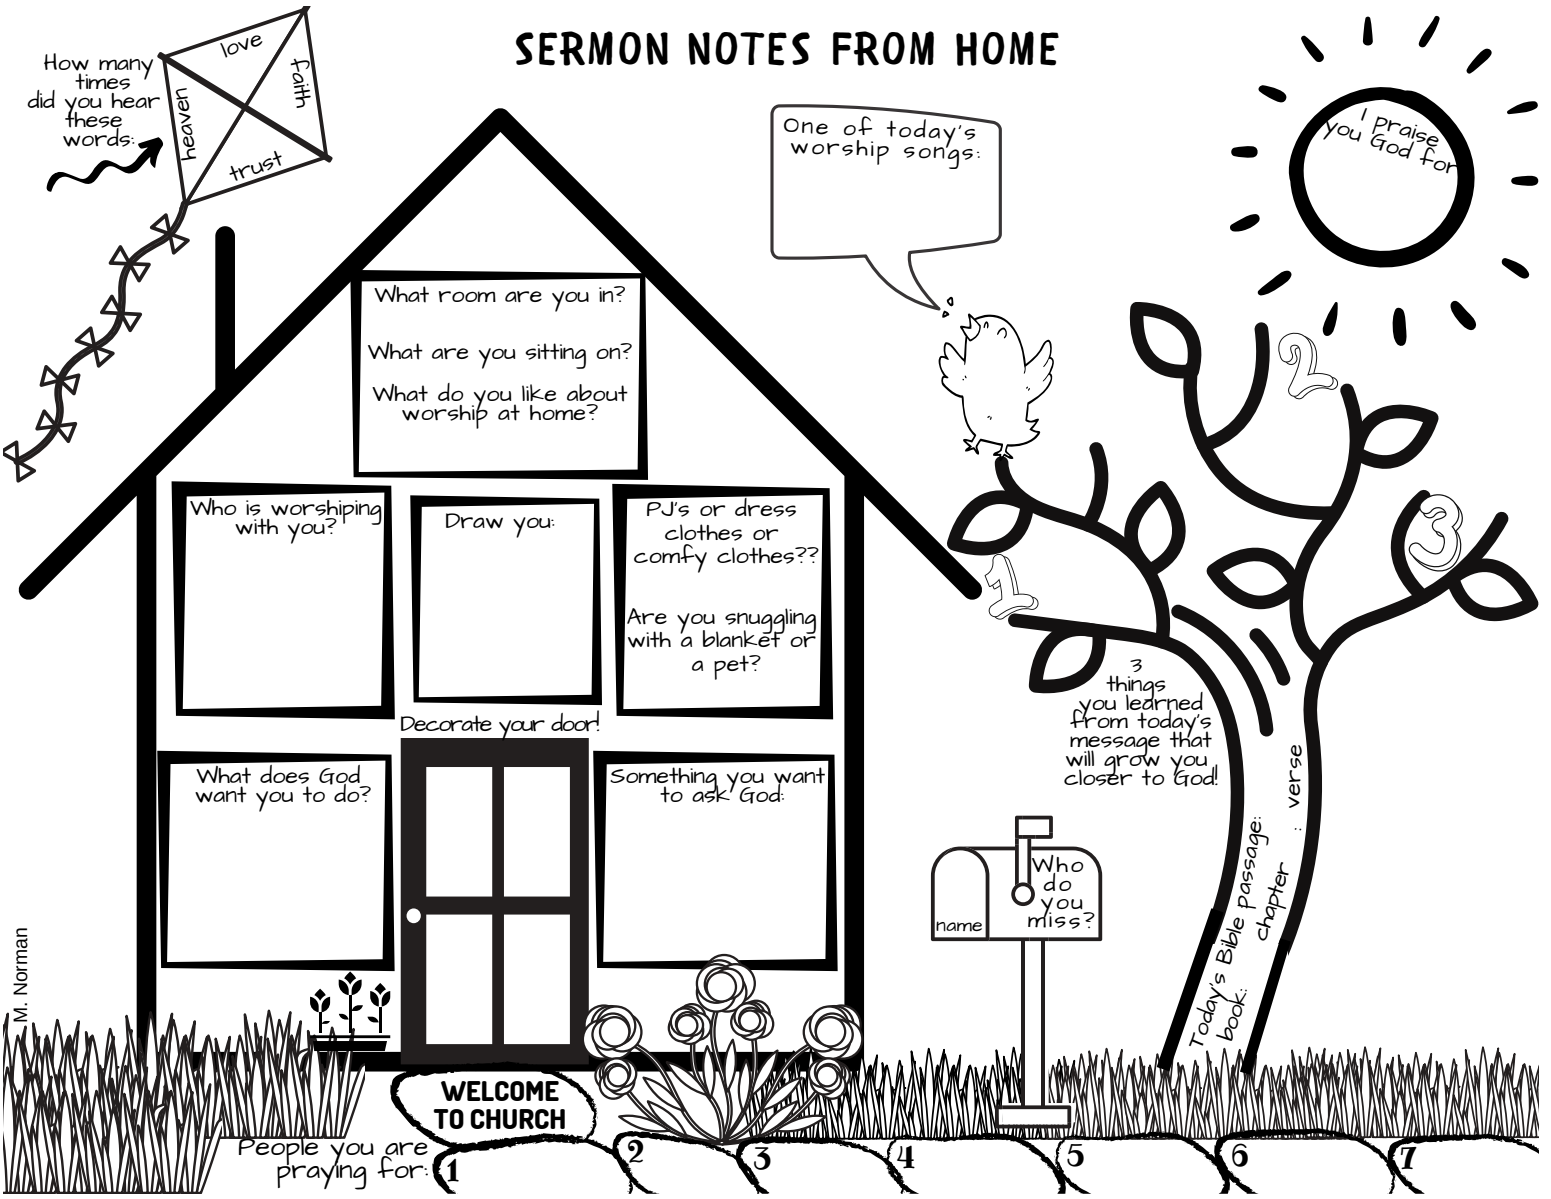 SERMON NOTES FROM HOME
How many
times
did you hear
these
words:
love
faith
heaven
trust
One of today's
worship songs:
I praise
you God for
What room are you in?
What are you sitting on?
What do you like about
worship at home?
Who is worshiping
with you?
Draw you:
PJ's or dress
clothes or
comfy clothes??
Are you snuggling
with a blanket or
a pet?
Decorate your door!
What does God
want you to do?
Something you want
to ask God:
1
2
3
3
things
you learned
from today's
message that
will grow you
closer to God!
Today's Bible passage:
book: chapter : verse
Who
do
you
miss?
name
M. Norman
WELCOME
TO CHURCH
People you are
praying for:
1
2
3
4
5
6
7